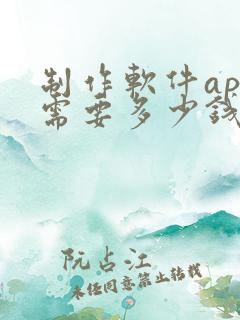 制作軟件ap
需要多少錢
阮占江
未经同意禁止转载